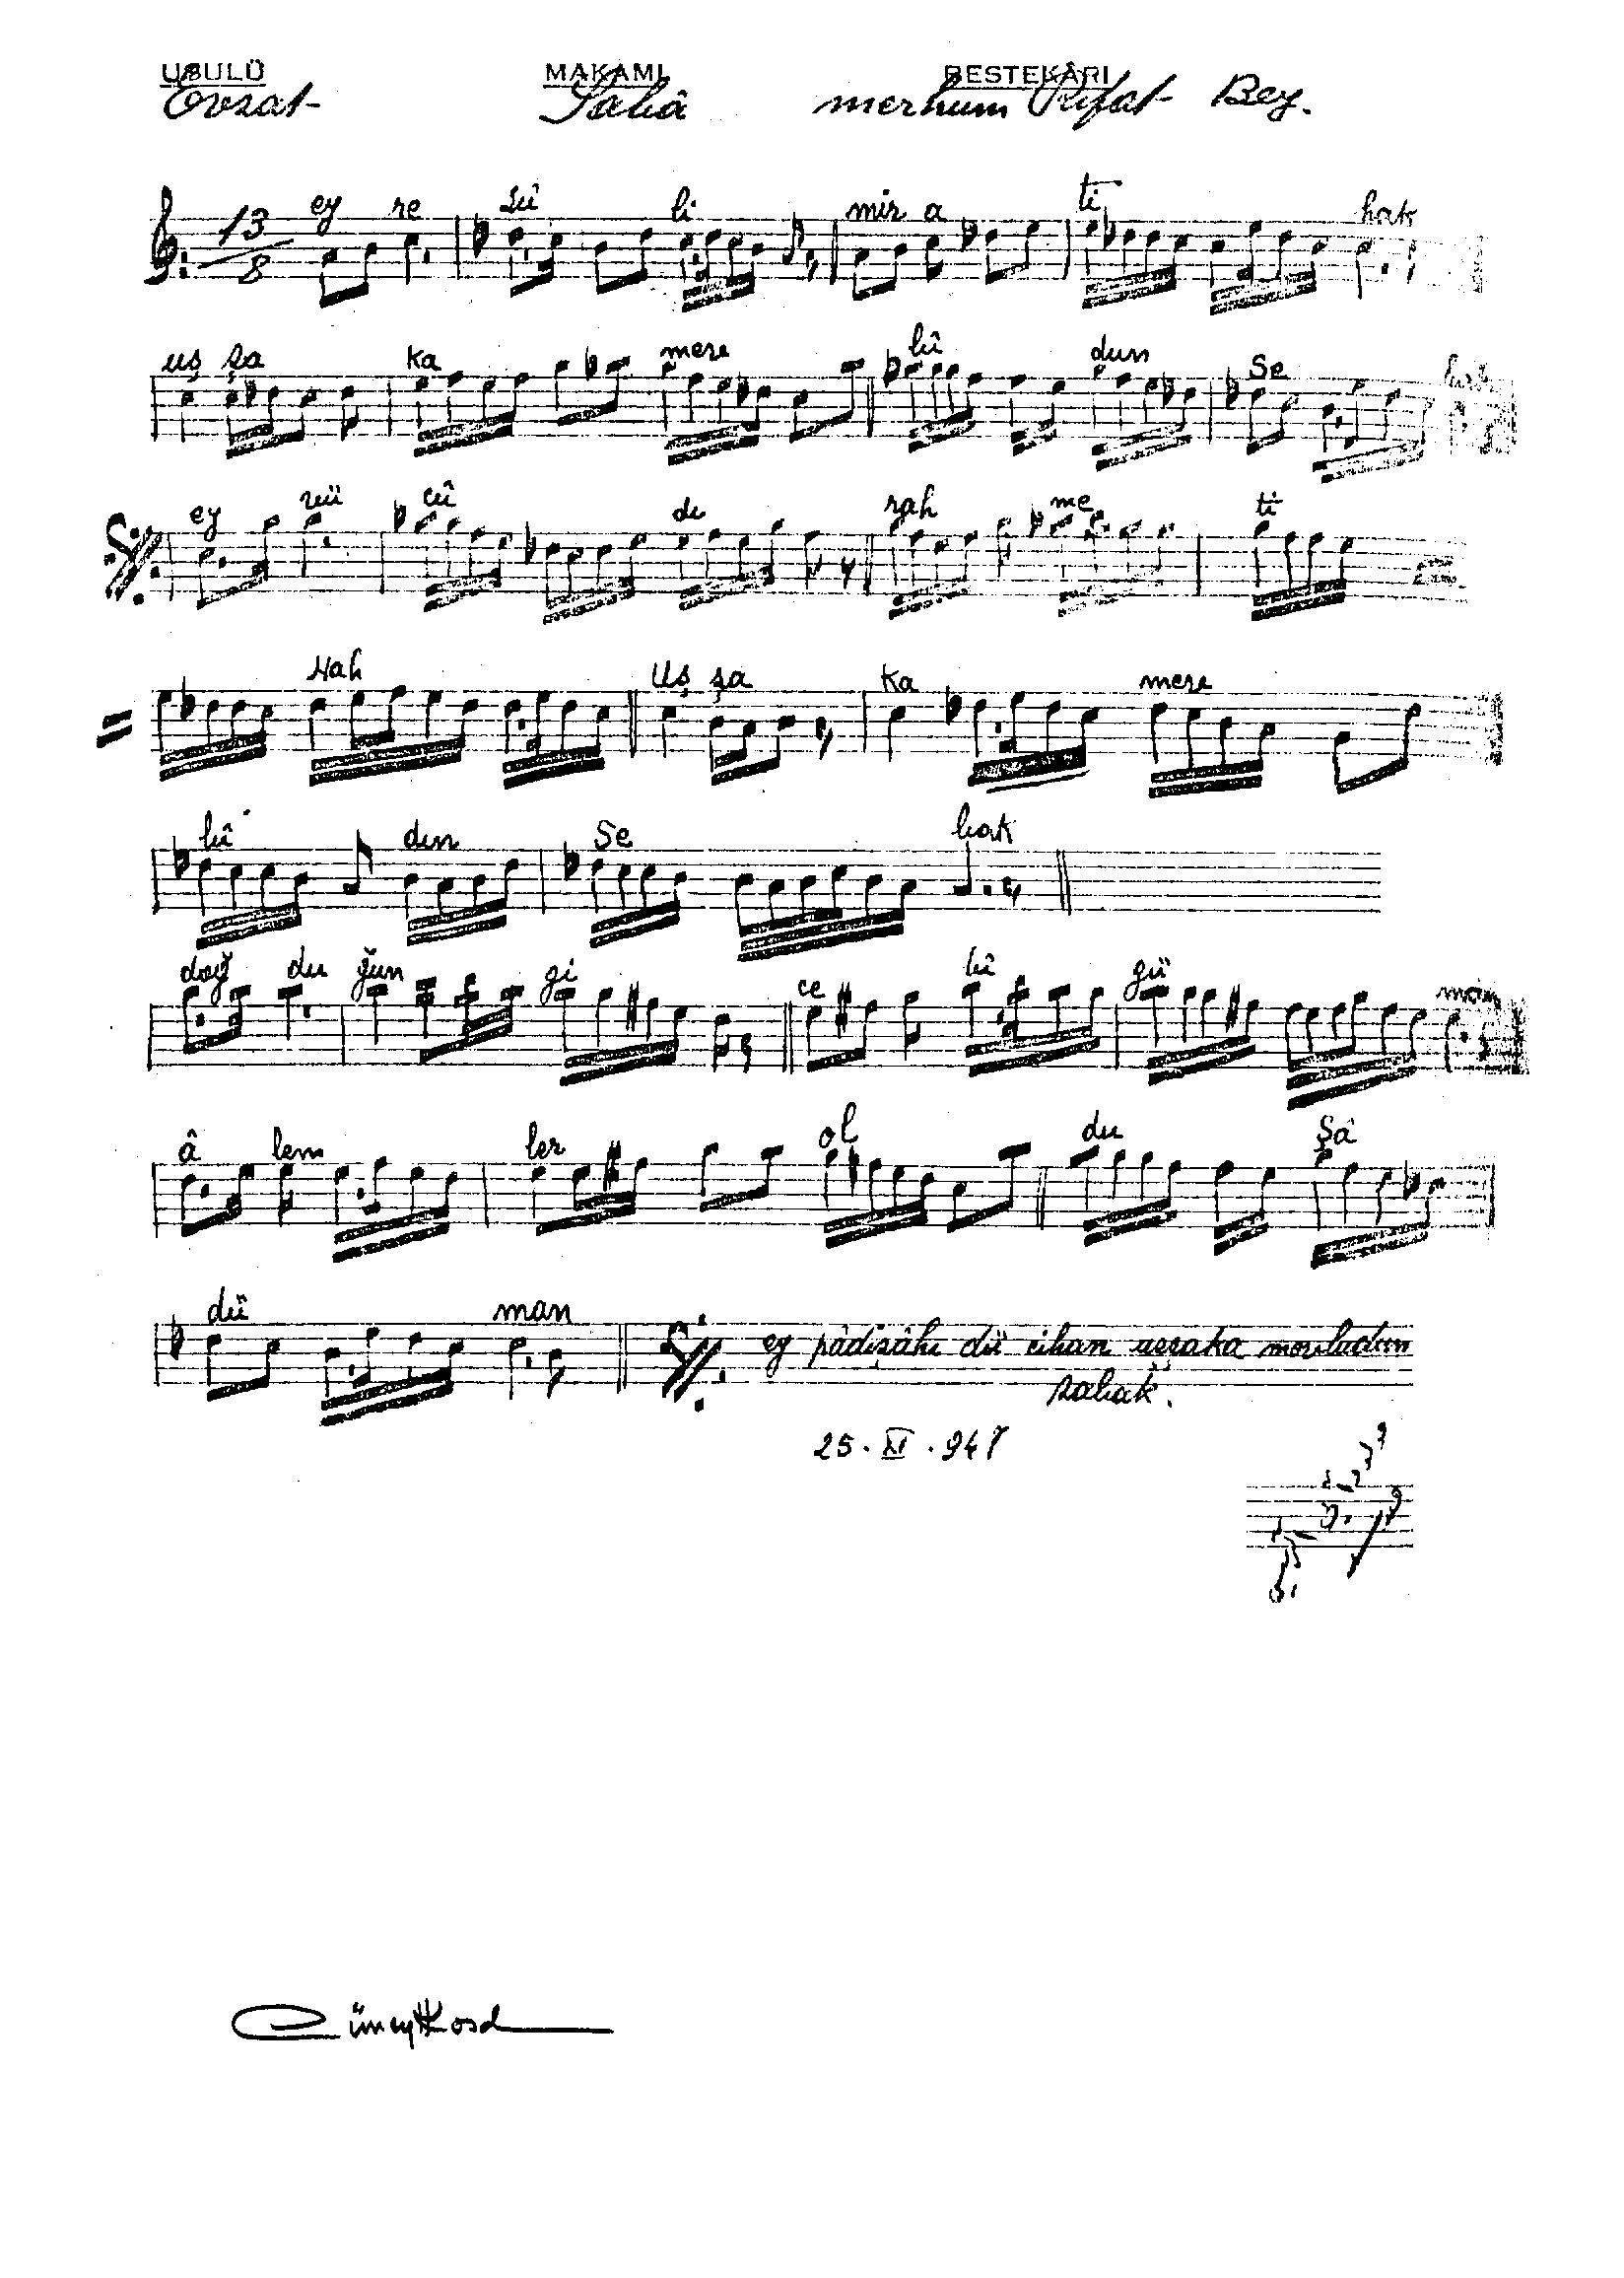 USULÜ MAKAMI BESTEKÂRI
Evsat Sabâ merhum Rifat Bey.
13
8
ey re sû li mir a ti hak
uş şa ka mere bû dun Se
ey vü cû di rah me ti
Hak Uş şa ka mere
bû dun Se bak
doğ du ğun gi ce bî gü man
â lem ler ol du Şâ
dü man ey pâdişâhı dü cihan uşşaka
sabak.
25. XI. 947